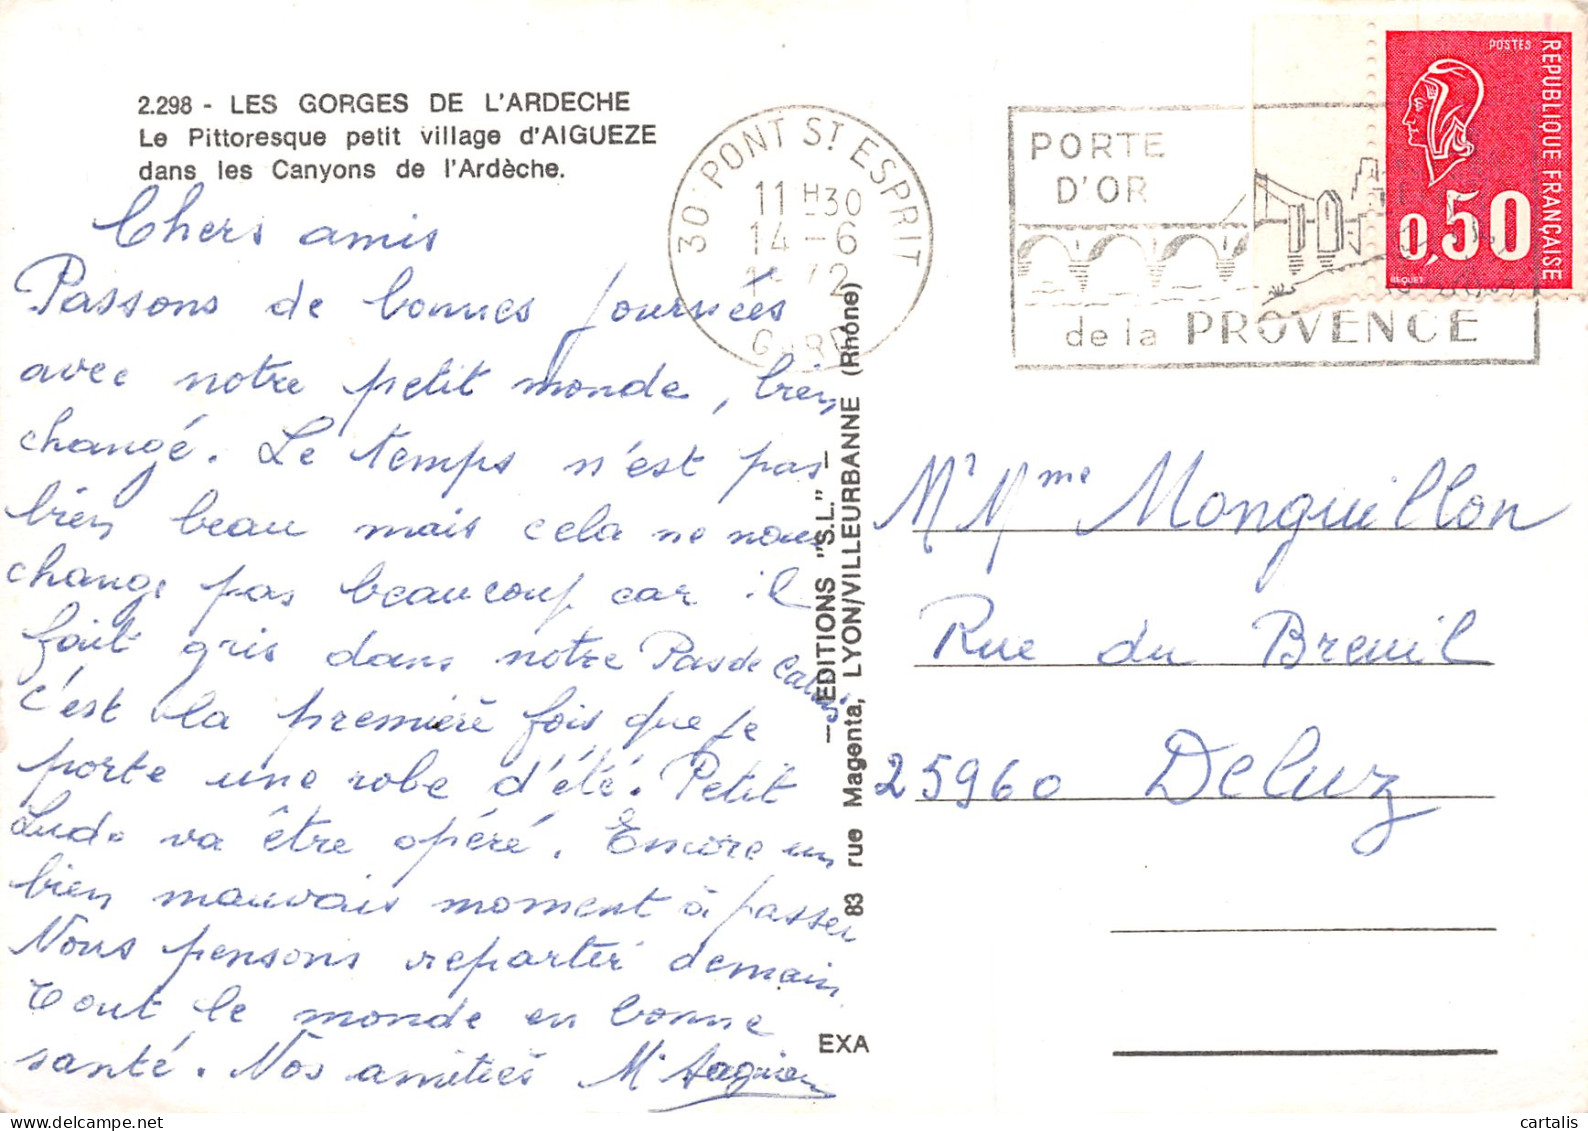 2.298 - LES GORGES DE L'ARDECHE
Le Pittoresque petit village d'AIGUEZE
dans les Canyons de l'Ardèche.
Chers amis
Passons de bonnes journées
avec notre petit monde, bien
changé. Le temps n'est pas
bien beau mais cela ne nous
change pas beaucoup car il
fait gris dans notre Pas de Calais
c'est la première fois que je
porte une robe d'été. Petit
Ludo va être opéré. Encore un
bien mauvais moment à passer
Nous pensons repartir demain
Tout le monde en bonne
santé. Nos amitiés M
30 PONT ST ESPRIT
11 H30
14-6
1972
GARD
PORTE
D'OR
de la PROVENCE
POSTES
REPUBLIQUE FRANÇAISE
0,50
BEQUET
— EDITIONS "S.L." —
83 rue Magenta, LYON/VILLEURBANNE (Rhône)
EXA
Mr Mme Monguillon
Rue du Breuil
25960 Deluz
cartalis